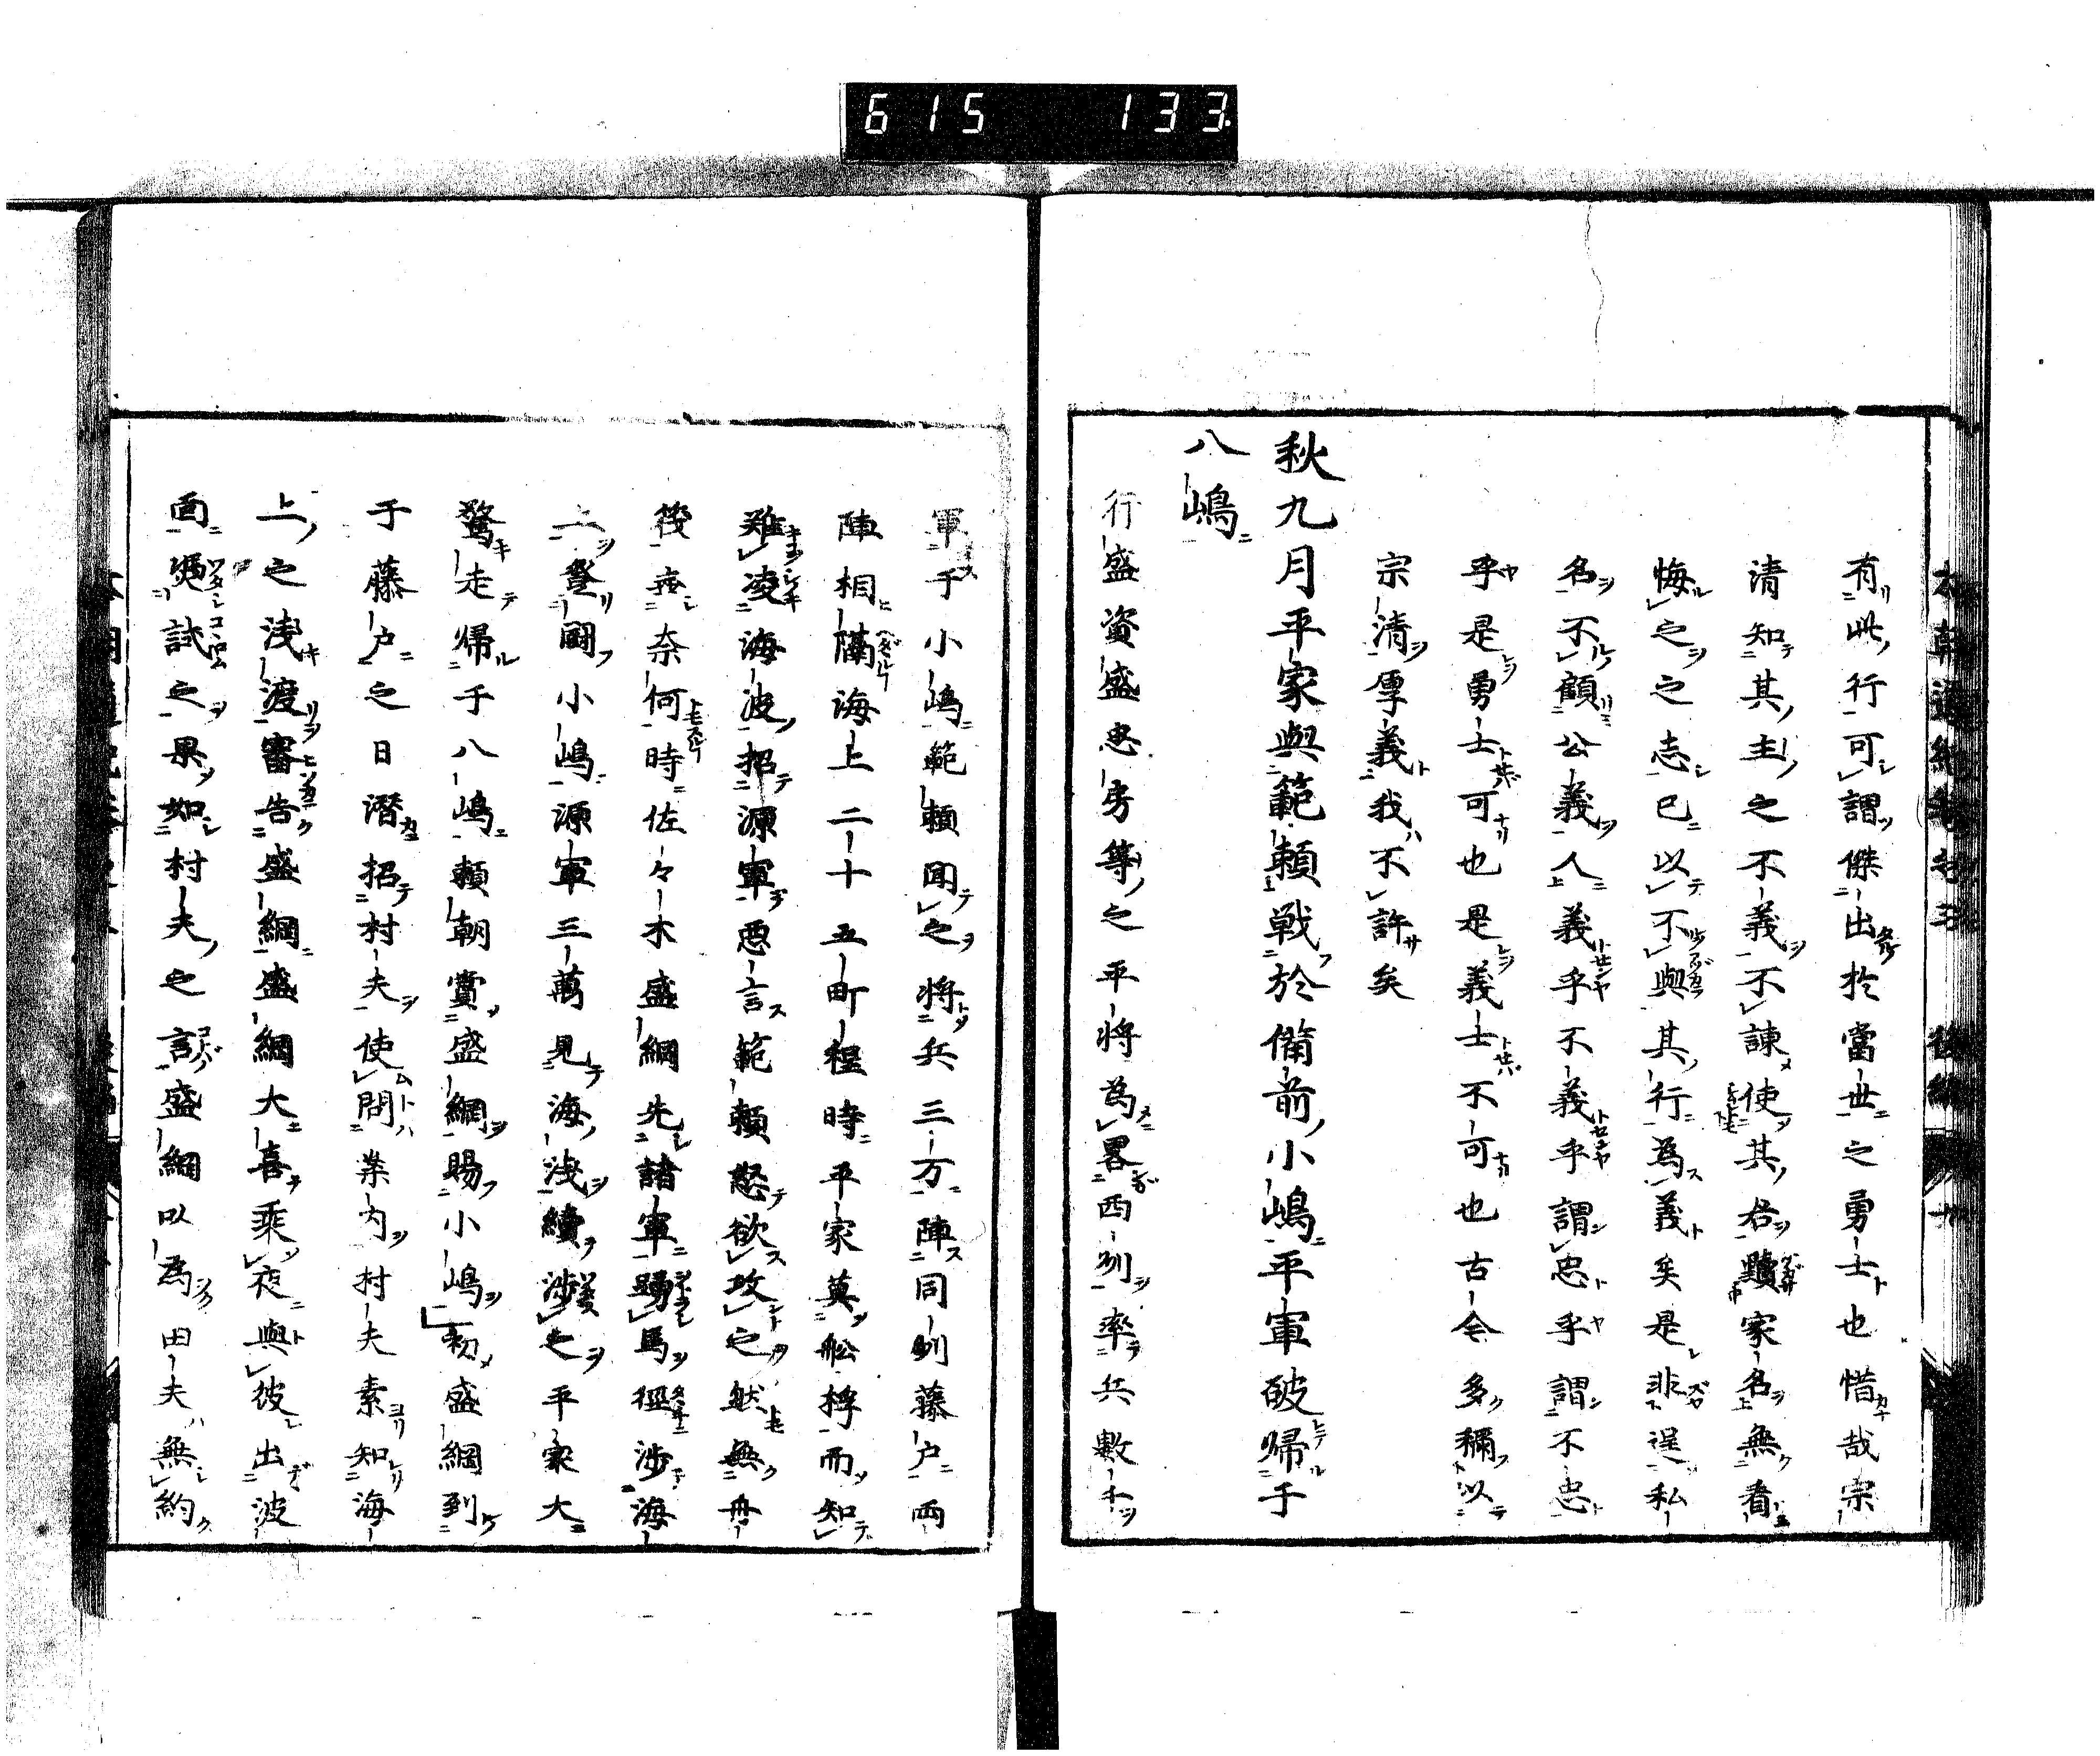 615 133
有此行可謂傑出於當世之勇士也惜哉宗
清知其主之不義不諫使其君黷家名無者
悔之之志已以不與其行為義矣是非逞私
名不顧公義人義乎不義乎謂忠乎謂不忠
乎是勇士可也是義士不可也古今多稱以
宗清厚義我不許矣
秋九月平家與範頼戦於備前小嶋平軍破帰于
八嶋
行盛資盛忠房等之平将為畧西州率兵數千
軍于小嶋範頼聞之将兵三万陣同州藤户両
陣相隔海上二十五町程時平家莫舩桙而知
難凌海波招源軍悪言範頼怒欲攻之然無舟
筏無奈何時佐々木盛綱先諸軍踴馬徑渉海
上登闘小嶋源軍三萬見海浅續渉之平家大
驚走帰于八嶋頼朝賞盛網賜小嶋初盛綱到
于藤户之日潜招村夫使問案内村夫素知海
上之浅渡審告盛綱盛綱大喜乘夜與彼出波
面試之果如村夫之言盛綱以為田夫無約